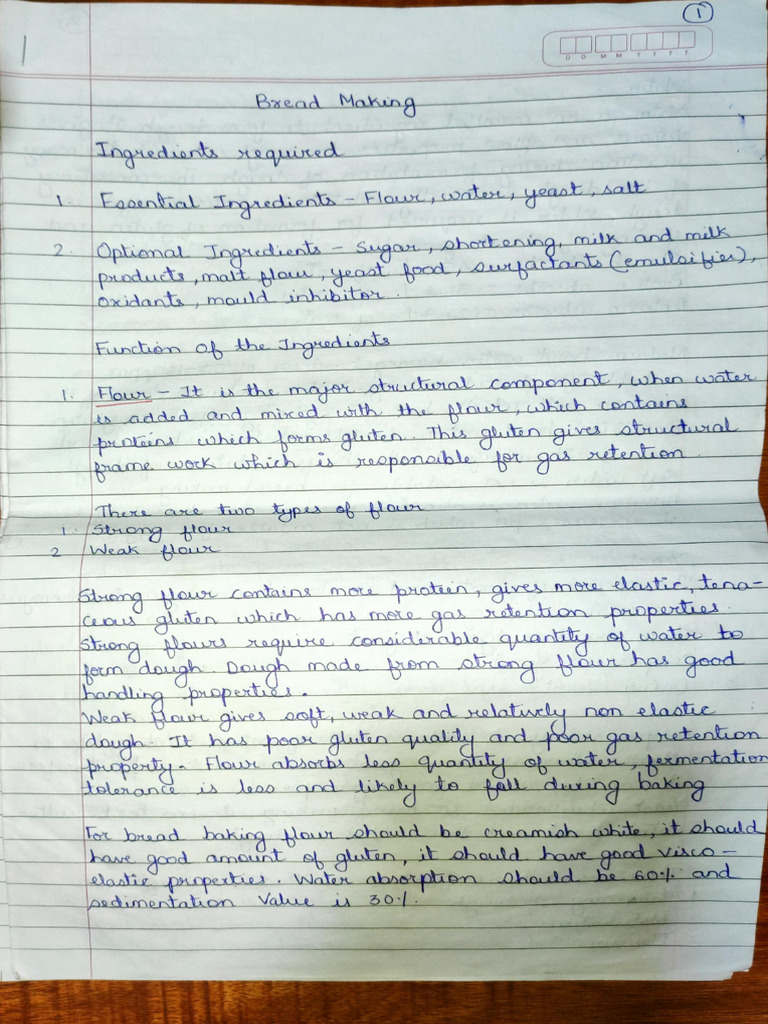 1
1
D D M M Y Y Y Y
Bread Making
Ingredients required
1. Essential Ingredients - Flour, water, yeast, salt
2. Optional Ingredients - Sugar, shortening, milk and milk
products, malt flour, yeast food, surfactants (emulsifier),
oxidants, mould inhibitor.
Function of the Ingredients
1. Flour - It is the major structural component, when water
is added and mixed with the flour, which contains
proteins which forms gluten. This gluten gives structural
frame work which is responsible for gas retention.
There are two types of flour
1. Strong flour
2 Weak flour
Strong flour contains more protein, gives more elastic, tena-
ceous gluten which has more gas retention properties.
Strong flours require considerable quantity of water to
form dough. Dough made from strong flour has good
handling properties.
Weak flour gives soft, weak and relatively non elastic
dough. It has poor gluten quality and poor gas retention
property. Flour absorbs less quantity of water, fermentation
tolerance is less and likely to fall during baking
For bread baking flour should be creamish white, it should
have good amount of gluten, it should have good visco-
elastic properties. Water absorption should be 60% and
sedimentation value is 30%.